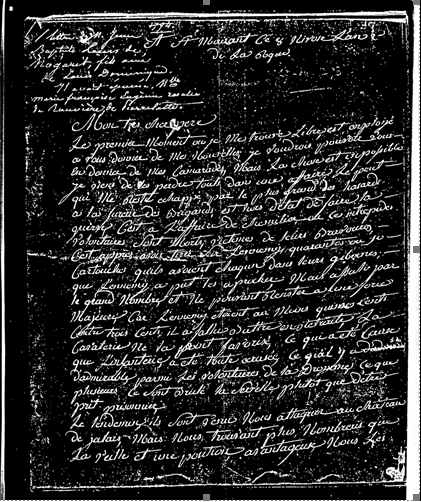 1 lettre de M. Jean
Baptiste Louis de
Magaret, fils ainé
de Louis Dominique
et Marie françoise Eugénie
de Rouvière de
1794.
A Mauzant Ce 8 Nivose L'an 2
de La Repque
Mon très cher pere
Le premier Moment ou je Me trouve Libre est employé
a vous donner de Mes Nouvelles, je voudrois pouvoir vous
en donner de Mes Camarades, Mais La chose est impossible
je viens de les perdre touts dans une affaire. Le peu
qui Me reste echappé par le plus grand des hazard
a la fureur des Brigands est hors d'etat de faire la
guerre. C'est a L'affaire de que ces intrepides
volontaires sont Morts victimes de leurs bravoure,
C'est apprès avoir tiré sur L'ennemy quarante ou
Cartouche qu'ils avoient chaqun dans leurs gibernes,
que L'ennemy a put les aprocher Mais affaissé par
le grand Nombre et Ne pouvant resister a une force
Majeure Car L'ennemy etoient au Moins quinze Cents
Contre trois Cents, il a fallu battre en retraite. La
Cavalerie Ne la point favorisé, ce qui a eté Cause
que L'infanterie a eté toute ecrasé, Ce qu'il y a
d'admirable parmi Les volontaires de la Dromme, Ce que
plusieurs Ce sont brulé la Cervelle plutot que d'etre
prit prisonnier
Le Lendemin ils sont venu Nous attaquer au château
de jalais, Mais Nous trouvant plus Nombreux que
La veille et une position avantageuse Nous Les